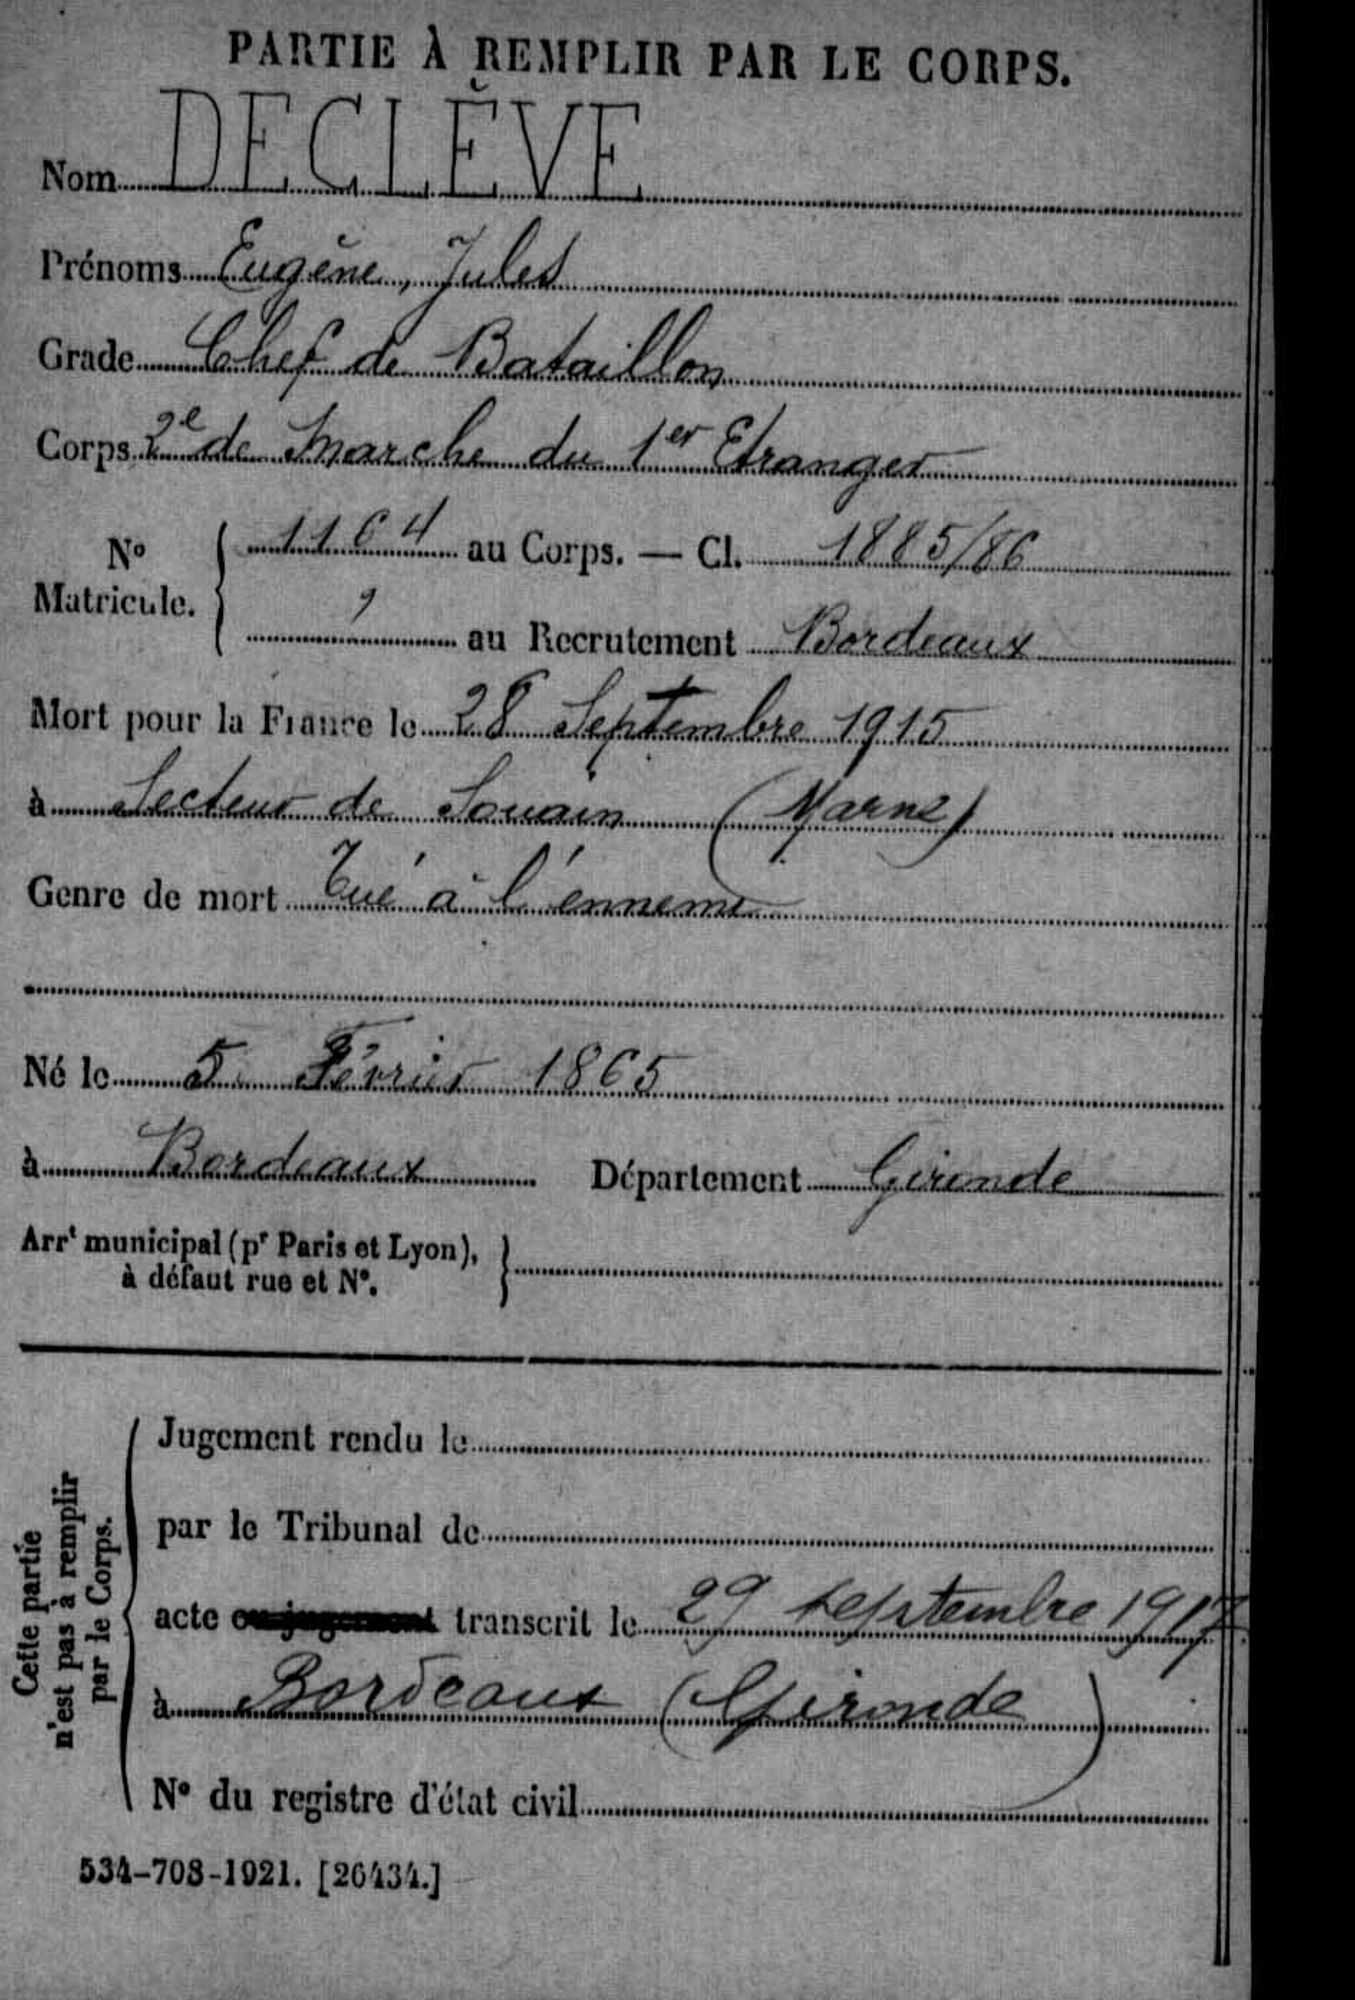 PARTIE À REMPLIR PAR LE CORPS.
Nom DECLÈVE
Prénoms Eugène, Jules
Grade Chef de Bataillon
Corps 2e de Marche du 1er Etranger
N° Matricule. 1164 au Corps. — Cl. 1885/86
" au Recrutement Bordeaux
Mort pour la France le 28 Septembre 1915
à Secteur de Souain (Marne)
Genre de mort Tué à l'ennemi
Né le 5 Février 1865
à Bordeaux Département Gironde
Arrt municipal (pr Paris et Lyon),
à défaut rue et N°.
Cette partie
n'est pas à remplir
par le Corps.
Jugement rendu le
par le Tribunal de
acte ou jugement transcrit le 29 septembre 1917
à Bordeaux (Gironde)
N° du registre d'état civil
534-708-1921. [26434.]